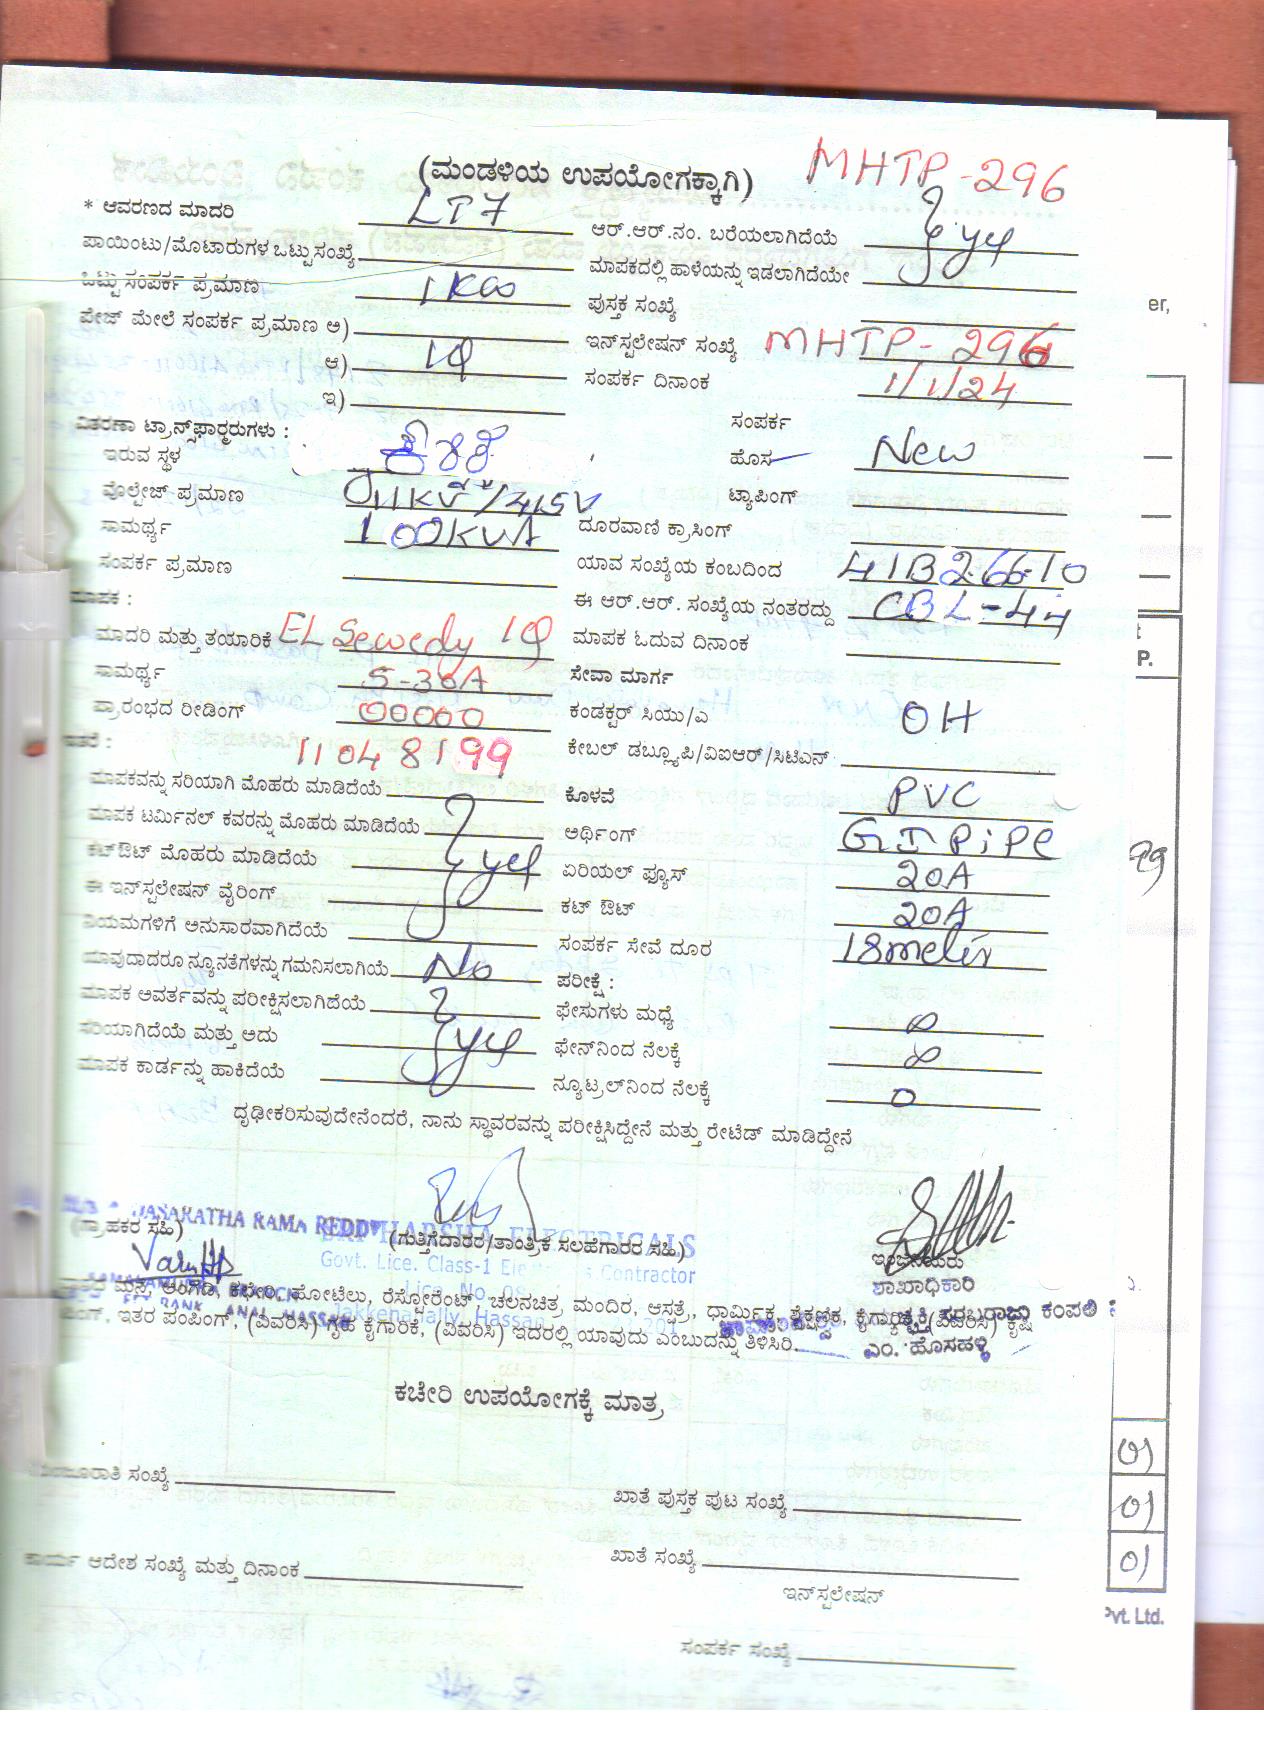 MHTP-296
(ಮಂಡಳಿಯ ಉಪಯೋಗಕ್ಕಾಗಿ)
* ಆವರಣದ ಮಾದರಿ LT7 ಆರ್.ಆರ್.ನಂ. ಬರೆಯಲಾಗಿದೆಯೆ
ಪಾಯಿಂಟು/ಮೊಟಾರುಗಳ ಒಟ್ಟು ಸಂಖ್ಯೆ ಮಾಪಕದಲ್ಲಿ ಹಾಳೆಯನ್ನು ಇಡಲಾಗಿದೆಯೇ yes
ಒಟ್ಟು ಸಂಪರ್ಕ ಪ್ರಮಾಣ 1KW ಪುಸ್ತಕ ಸಂಖ್ಯೆ
ಪೇಜ್ ಮೇಲೆ ಸಂಪರ್ಕ ಪ್ರಮಾಣ ಅ) ಇನ್‌ಸ್ಟಲೇಷನ್ ಸಂಖ್ಯೆ MHTP-296
ಆ) 1φ ಸಂಪರ್ಕ ದಿನಾಂಕ 1/1/24
ಇ)
ವಿತರಣಾ ಟ್ರಾನ್ಸ್‌ಫಾರ್‍ಮರುಗಳು : ಸಂಪರ್ಕ
ಇರುವ ಸ್ಥಳ ಹೊಸ New
ವೊಲ್ಟೇಜ್ ಪ್ರಮಾಣ 11KV/415V ಟ್ಯಾಪಿಂಗ್
ಸಾಮರ್ಥ್ಯ 100KVA ದೂರವಾಣಿ ಕ್ರಾಸಿಂಗ್
ಸಂಪರ್ಕ ಪ್ರಮಾಣ ಯಾವ ಸಂಖ್ಯೆಯ ಕಂಬದಿಂದ
ಮಾಪಕ : ಈ ಆರ್.ಆರ್. ಸಂಖ್ಯೆಯ ನಂತರದ್ದು CBL-44
ಮಾದರಿ ಮತ್ತು ತಯಾರಿಕೆ EL Sewedy 1φ ಮಾಪಕ ಓದುವ ದಿನಾಂಕ
ಸಾಮರ್ಥ್ಯ 5-30A ಸೇವಾ ಮಾರ್ಗ
ಪ್ರಾರಂಭದ ರೀಡಿಂಗ್ 00000 ಕಂಡಕ್ಟರ್ ಸಿಯು/ಎ OH
ಇತರೆ : 11048199 ಕೇಬಲ್ ಡಬ್ಲ್ಯೂಪಿ/ವಿಐಆರ್/ಸಿಟಿಎಸ್
ಮಾಪಕವನ್ನು ಸರಿಯಾಗಿ ಮೊಹರು ಮಾಡಿದೆಯೆ ಕೊಳವೆ PVC
ಮಾಪಕ ಟರ್ಮಿನಲ್ ಕವರನ್ನು ಮೊಹರು ಮಾಡಿದೆಯೆ ಅರ್ಥಿಂಗ್ GI PiPe
ಕಟ್‌ಔಟ್ ಮೊಹರು ಮಾಡಿದೆಯೆ yes ಏರಿಯಲ್ ಫ್ಯೂಸ್ 20A
ಈ ಇನ್‌ಸ್ಟಲೇಷನ್ ವೈರಿಂಗ್ ಕಟ್ ಔಟ್ 20A
ನಿಯಮಗಳಿಗೆ ಅನುಸಾರವಾಗಿದೆಯೆ ಸಂಪರ್ಕ ಸೇವೆ ದೂರ 18meter
ಯಾವುದಾದರೂ ನ್ಯೂನತೆಗಳನ್ನು ಗಮನಿಸಲಾಗಿಯೆ No ಪರೀಕ್ಷೆ :
ಮಾಪಕ ಅವರ್ತವನ್ನು ಪರೀಕ್ಷಿಸಲಾಗಿದೆಯೆ ಫೇಸುಗಳು ಮಧ್ಯೆ ∞
ಸರಿಯಾಗಿದೆಯೆ ಮತ್ತು ಅದು yes ಫೇಸ್‌ನಿಂದ ನೆಲಕ್ಕೆ ∞
ಮಾಪಕ ಕಾರ್ಡನ್ನು ಹಾಕಿದೆಯೆ ನ್ಯೂಟ್ರಲ್‌ನಿಂದ ನೆಲಕ್ಕೆ 0
ದೃಢೀಕರಿಸುವುದೇನೆಂದರೆ, ನಾನು ಸ್ಥಾವರವನ್ನು ಪರೀಕ್ಷಿಸಿದ್ದೇನೆ ಮತ್ತು ರೇಟೆಡ್ ಮಾಡಿದ್ದೇನೆ
JANAKATHA RAMA REDDY HARSHA ELECTRICALS
(ಗ್ರಾಹಕರ ಸಹಿ) (ಗುತ್ತಿಗೆದಾರರ/ತಾಂತ್ರಿಕ ಸಲಹೆಗಾರರ ಸಹಿ) ಇಂಜಿನಿಯರು
Govt. Lice. Class-1 Contractor ಶಾಖಾಧಿಕಾರಿ
Lice. No.
ಮನೆ, ಅಂಗಡಿ, ಕಛೇರಿ, ಹೋಟೆಲು, ರೆಸ್ಟೋರೆಂಟ್ ಚಲನಚಿತ್ರ ಮಂದಿರ, ಆಸ್ಪತ್ರೆ, ಧಾರ್ಮಿಕ, ಶೈಕ್ಷಣಿಕ, (ವಿವರಿಸಿ) ಕೃಷಿ
Jakkenahally, Hassan
ಇತರ ಪಂಪಿಂಗ್, (ವಿವರಿಸಿ) ಗೃಹ ಕೈಗಾರಿಕೆ, (ವಿವರಿಸಿ) ಇದರಲ್ಲಿ ಯಾವುದು ಎಂಬುದನ್ನು ತಿಳಿಸಿರಿ. ಎಂ. ಹೊಸಹಳ್ಳಿ
ಕಚೇರಿ ಉಪಯೋಗಕ್ಕೆ ಮಾತ್ರ
ಮಂಜೂರಾತಿ ಸಂಖ್ಯೆ ಖಾತೆ ಪುಸ್ತಕ ಪುಟ ಸಂಖ್ಯೆ
ಕಾರ್ಯ ಆದೇಶ ಸಂಖ್ಯೆ ಮತ್ತು ದಿನಾಂಕ ಖಾತೆ ಸಂಖ್ಯೆ
ಇನ್‌ಸ್ಟಲೇಷನ್
ಸಂಪರ್ಕ ಸಂಖ್ಯೆ
er,
P.
01
01
01
Pvt. Ltd.